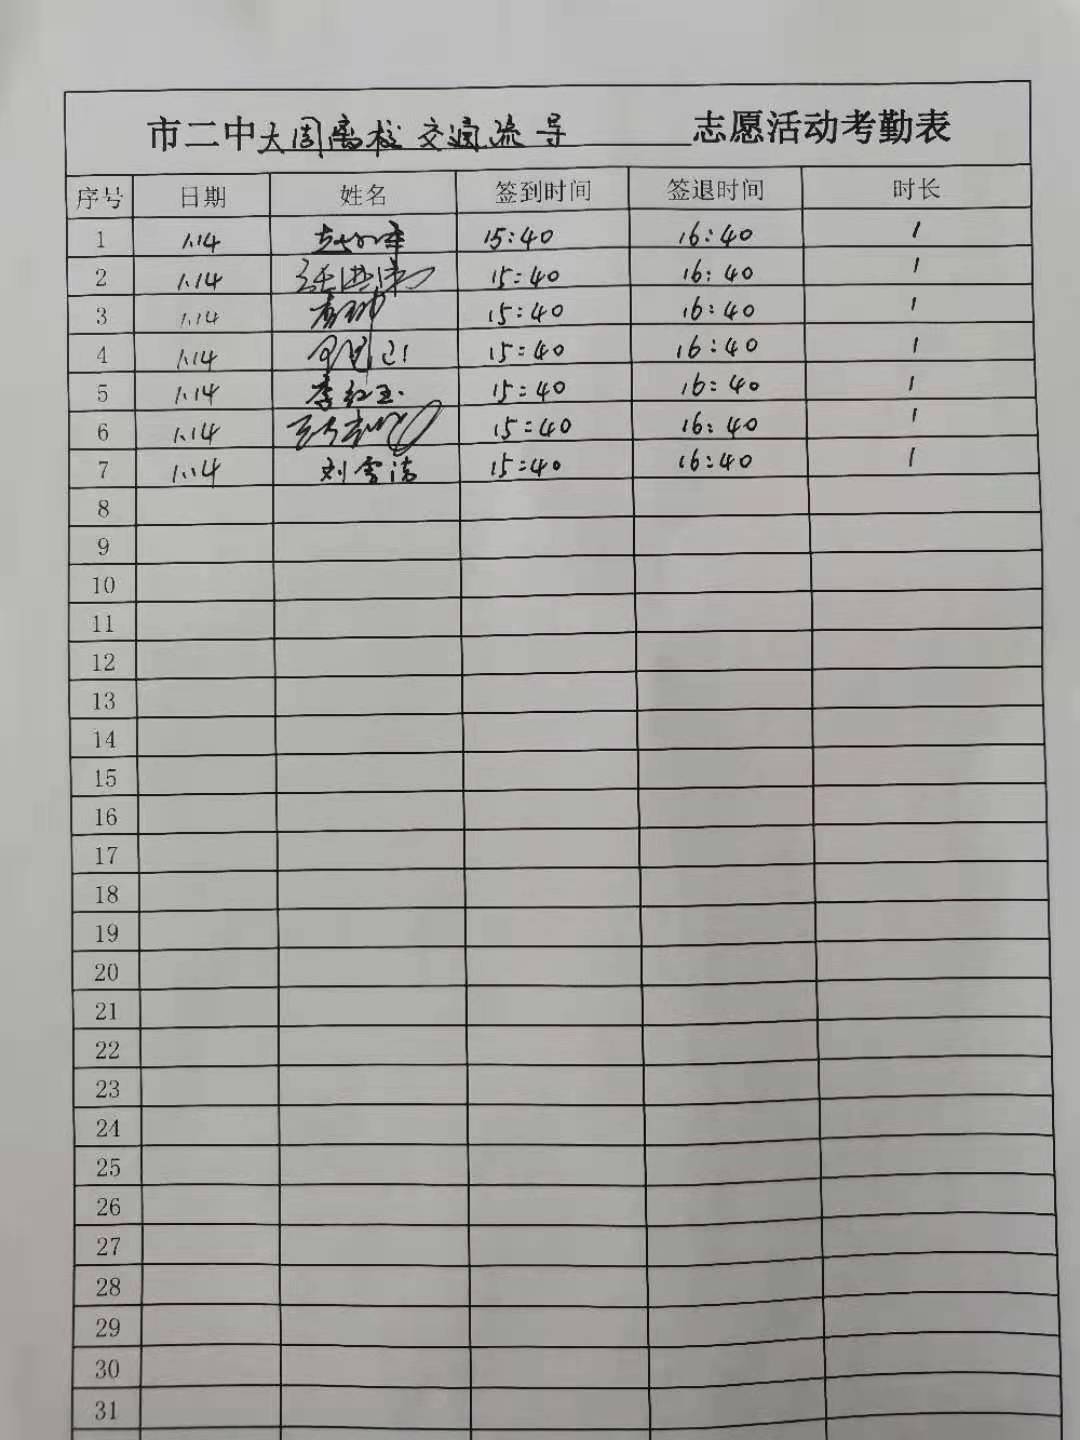 市二中大周离校交通疏导志愿活动考勤表
序号 日期 姓名 签到时间 签退时间 时长
1 1.14 15:40 16:40 1
2 1.14 15:40 16:40 1
3 1.14 15:40 16:40 1
4 1.14 15:40 16:40 1
5 1.14 李红玉 15:40 16:40 1
6 1.14 15:40 16:40 1
7 1.14 刘雪洁 15:40 16:40 1
8
9
10
11
12
13
14
15
16
17
18
19
20
21
22
23
24
25
26
27
28
29
30
31